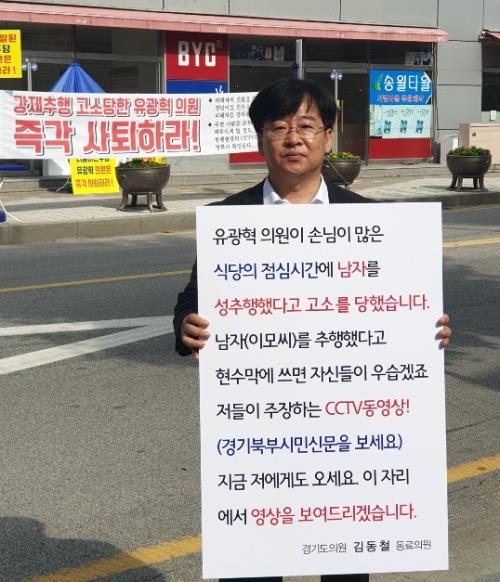 BYC
강제추행 고소당한 유광혁 의원
즉각 사퇴하라!
송월타올
유광혁 의원은
즉각 사퇴하라
유광혁 의원이 손님이 많은
식당의 점심시간에 남자를
성추행했다고 고소를 당했습니다.
남자(이모씨)를 추행했다고
현수막에 쓰면 자신들이 우습겠죠
저들이 주장하는 CCTV동영상!
(경기북부시민신문을 보세요)
지금 저에게도 오세요. 이 자리
에서 영상을 보여드리겠습니다.
경기도의원 김동철 동료의원